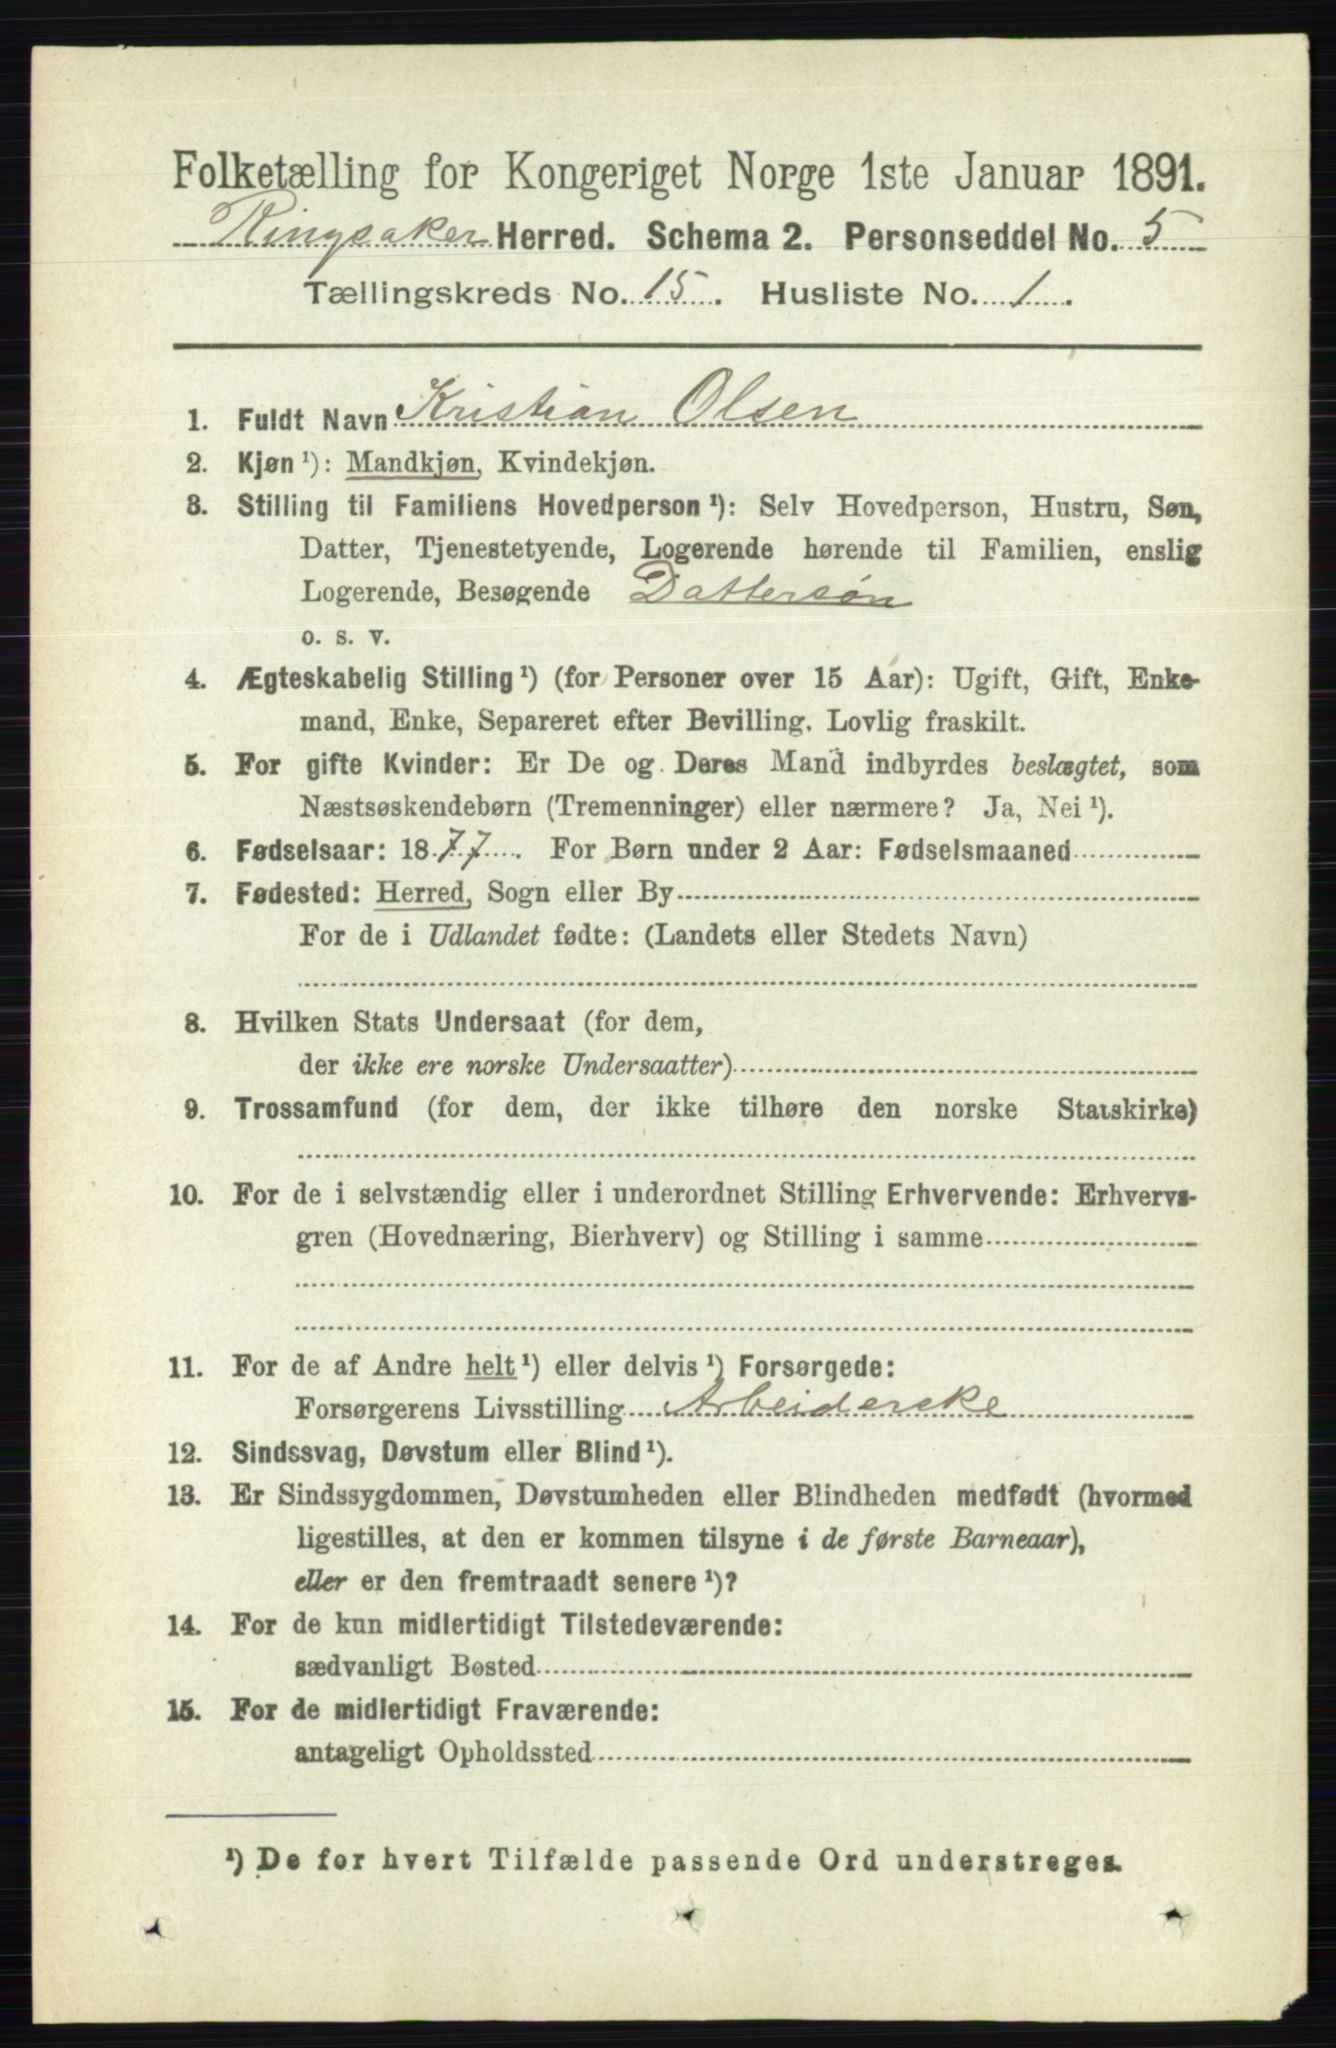 Folketælling for Kongeriget Norge 1ste Januar 1891.
Ringsaker Herred. Schema 2. Personseddel No. 5
Tællingskreds No. 15. Husliste No. 1.
1. Fuldt Navn Kristian Olsen
2. Kjøn ¹): Mandkjøn, Kvindekjøn.
3. Stilling til Familiens Hovedperson ¹): Selv Hovedperson, Hustru, Søn,
Datter, Tjenestetyende, Logerende hørende til Familien, enslig
Logerende, Besøgende Dattersøn
o. s. v.
4. Ægteskabelig Stilling ¹) (for Personer over 15 Aar): Ugift, Gift, Enke-
mand, Enke, Separeret efter Bevilling. Lovlig fraskilt.
5. For gifte Kvinder: Er De og Deres Mand indbyrdes beslægtet, som
Næstsøskendebørn (Tremenninger) eller nærmere? Ja, Nei ¹).
6. Fødselsaar: 1877. For Børn under 2 Aar: Fødselsmaaned
7. Fødested: Herred, Sogn eller By
For de i Udlandet fødte: (Landets eller Stedets Navn)
8. Hvilken Stats Undersaat (for dem,
der ikke ere norske Undersaatter)
9. Trossamfund (for dem, der ikke tilhøre den norske Statskirke)
10. For de i selvstændig eller i underordnet Stilling Erhvervende: Erhvervs-
gren (Hovednæring, Bierhverv) og Stilling i samme
11. For de af Andre helt ¹) eller delvis ¹) Forsørgede:
Forsørgerens Livsstilling Arbeiderske
12. Sindssvag, Døvstum eller Blind ¹).
13. Er Sindssygdommen, Døvstumheden eller Blindheden medfødt (hvormed
ligestilles, at den er kommen tilsyne i de første Barneaar),
eller er den fremtraadt senere ¹)?
14. For de kun midlertidigt Tilstedeværende:
sædvanligt Bosted
15. For de midlertidigt Fraværende:
antageligt Opholdssted
¹) De for hvert Tilfælde passende Ord understreges.